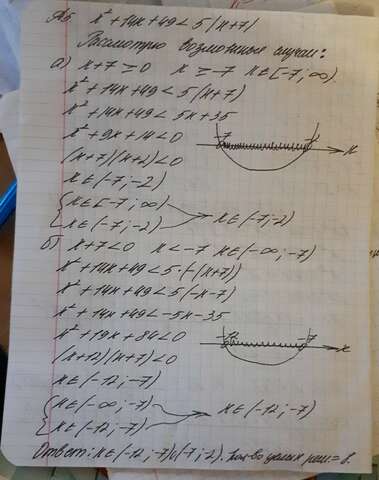 №5 x²+14x+49<5|x+7|
Рассмотрю возможные случаи:
а) x+7≥0 x≥-7 x∈[-7;∞)
x²+14x+49<5(x+7)
x²+14x+49<5x+35
x²+9x+14<0
(x+7)(x+2)<0
-7 -2 x
x∈(-7;-2)
{x∈[-7;∞)
x∈(-7;-2) x∈(-7;-2)
б) x+7<0 x<-7 x∈(-∞;-7)
x²+14x+49<5·(-(x+7))
x²+14x+49<5(-x-7)
x²+14x+49<-5x-35
x²+19x+84<0
(x+12)(x+7)<0
-12 -7 x
x∈(-12;-7)
{x∈(-∞;-7)
x∈(-12;-7) x∈(-12;-7)
Ответ: x∈(-12;-7)∪(-7;2). Кол-во целых реш = 8.